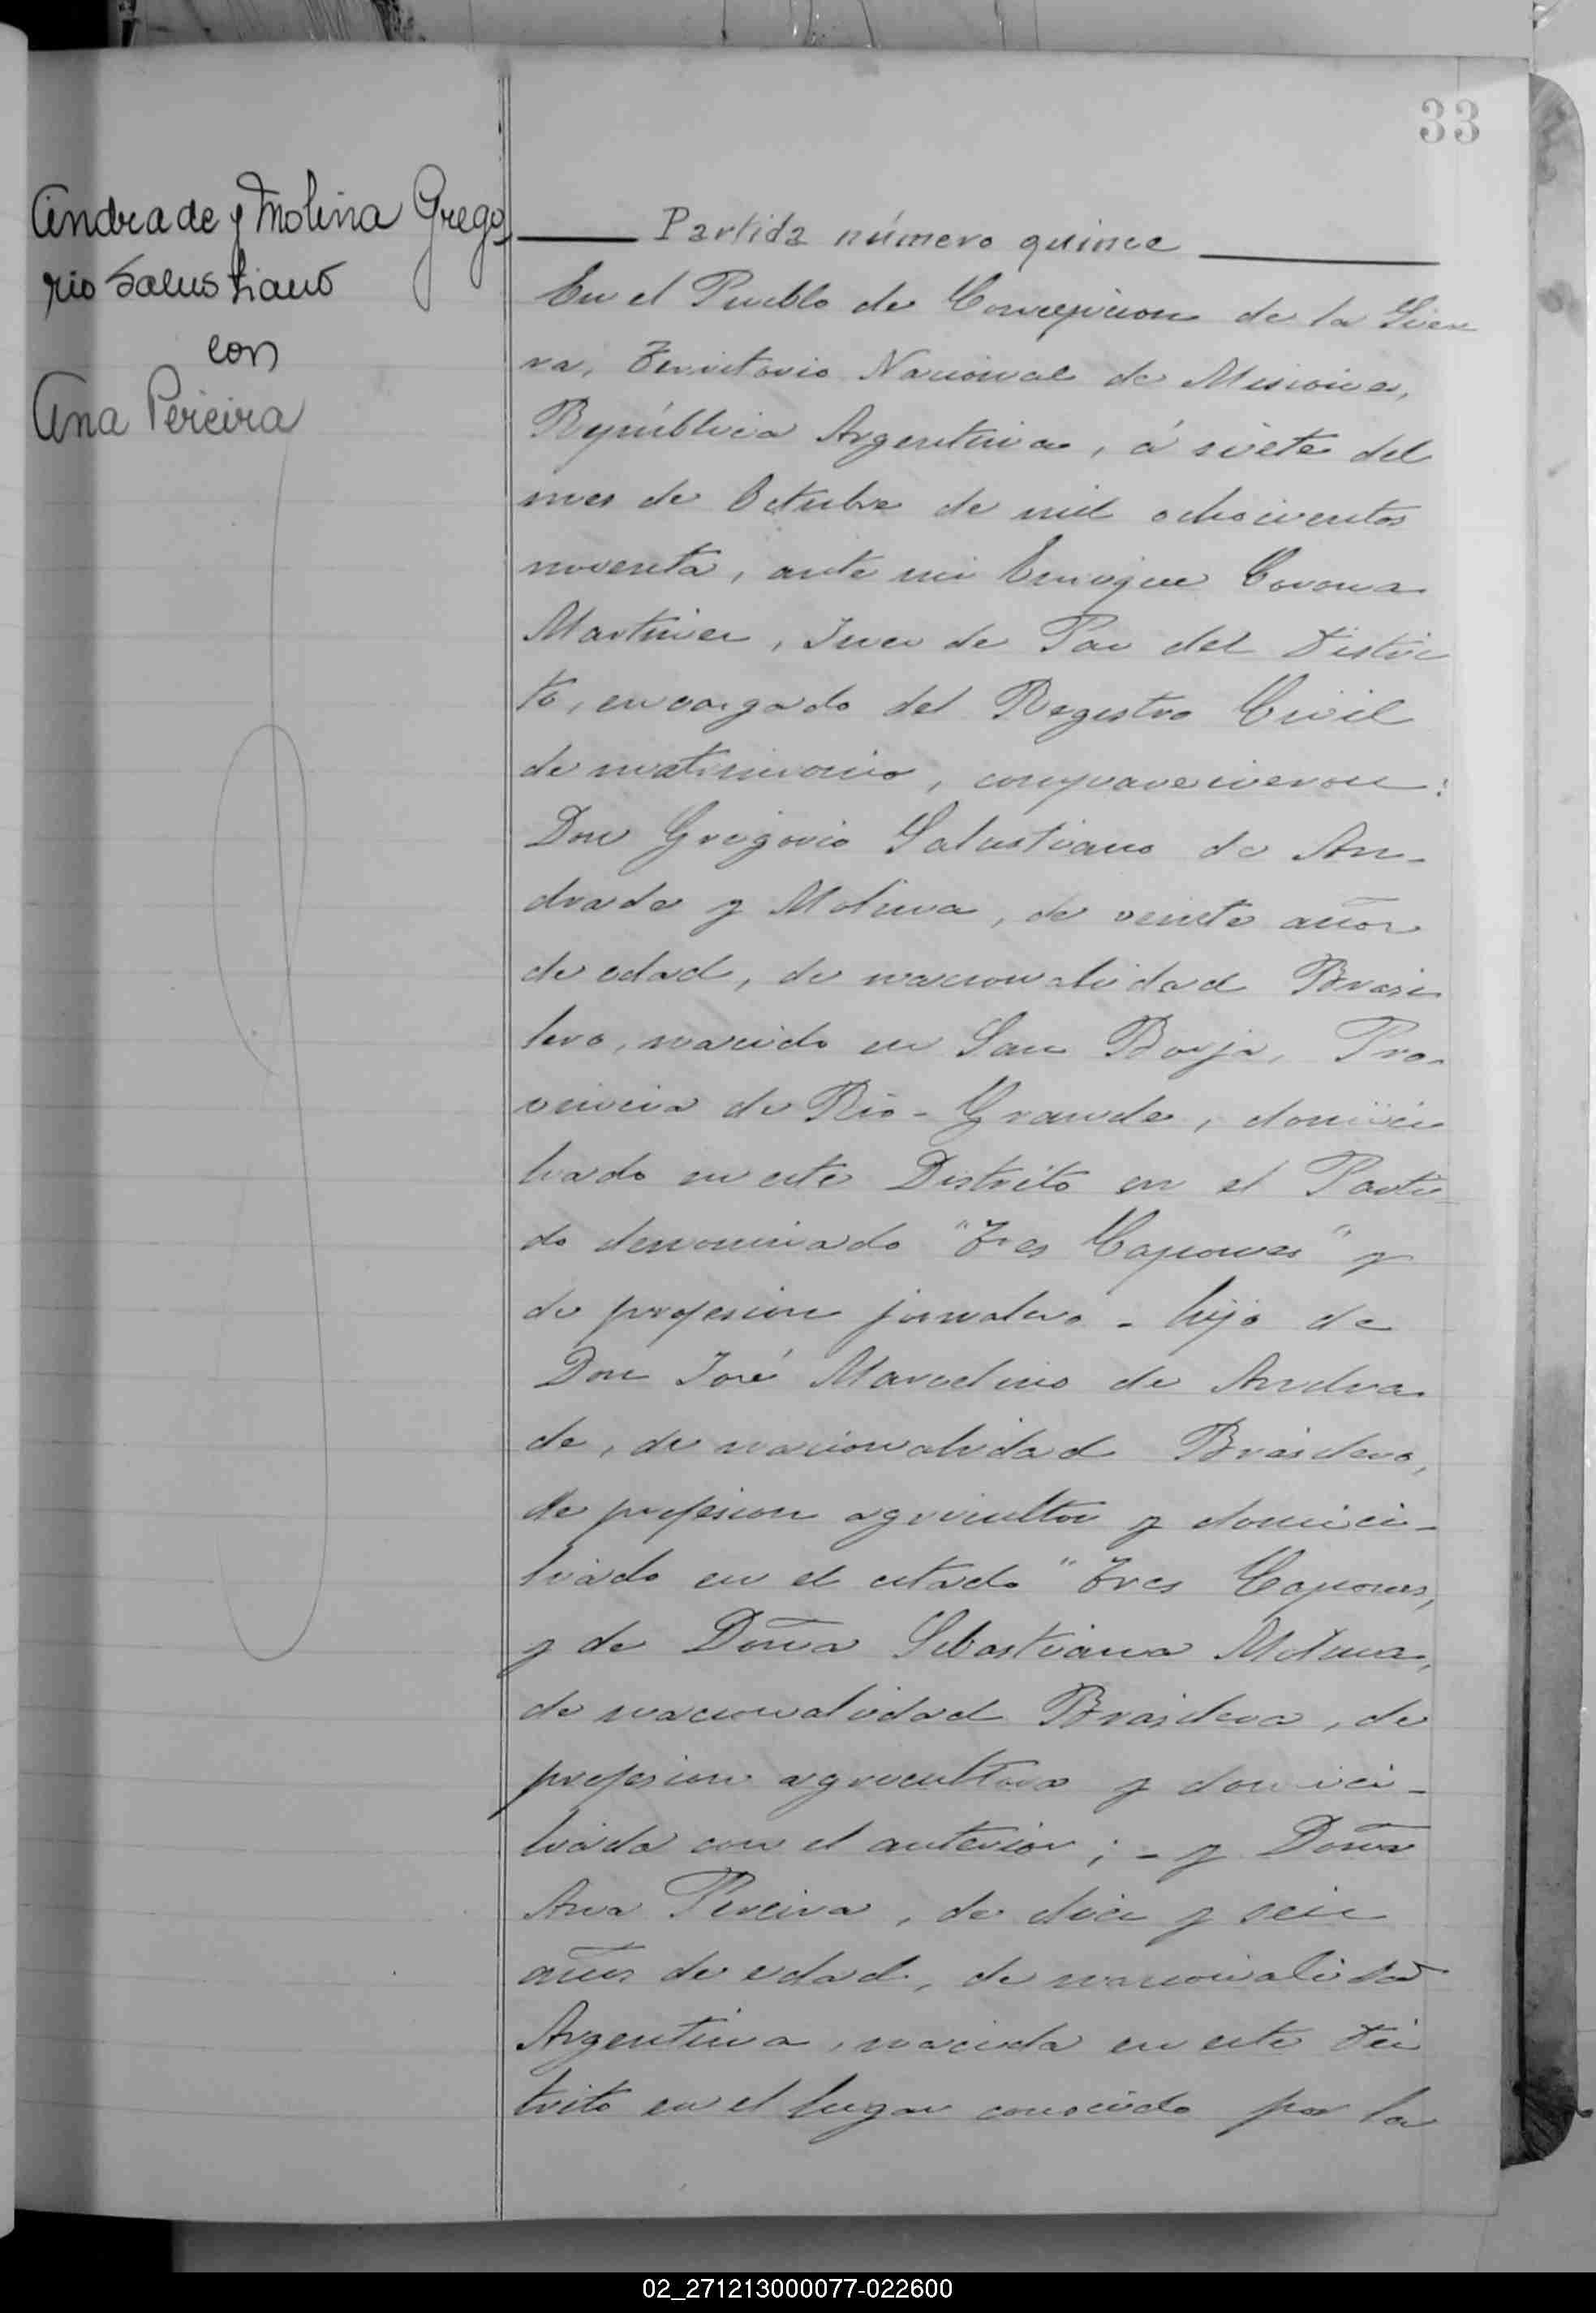 33
Andrade y Molina Grego-
rio Salustiano
con
Ana Pereira
Partida número quince
En el Pueblo de Concepcion de la Sier
ra, Territorio Nacional de Misiones,
República Argentina, á siete del
mes de Octubre de mil ochocientos
noventa, ante mi Enrique Corona
Martinez, Juez de Paz del Distri
to, encargado del Registro Civil
de matrimonio, comparecieron:
Don Gregorio Salustiano de An-
drade y Molina, de veinte años
de edad, de nacionalidad Brasi
lero, nacido en San Borja, Pro-
vincia de Rio-Grande, domici
liado en este Distrito en el Parti
do denominado "Tres Capones" y
de profesion jornalero - hijo de
Don José Marcelino de Andra
de, de nacionalidad Brasilero,
de profesion agricultor y domici-
liado en el citado "Tres Capones,
y de Doña Sebastiana Molina,
de nacionalidad Brasilera, de
profesion agricultora y domici-
liada con el anterior; - y Doña
Ana Pereira, de diez y seis
años de edad, de nacionalidad
Argentina, nacida en este Dis
trito en el lugar conocido por la
02_271213000077-022600